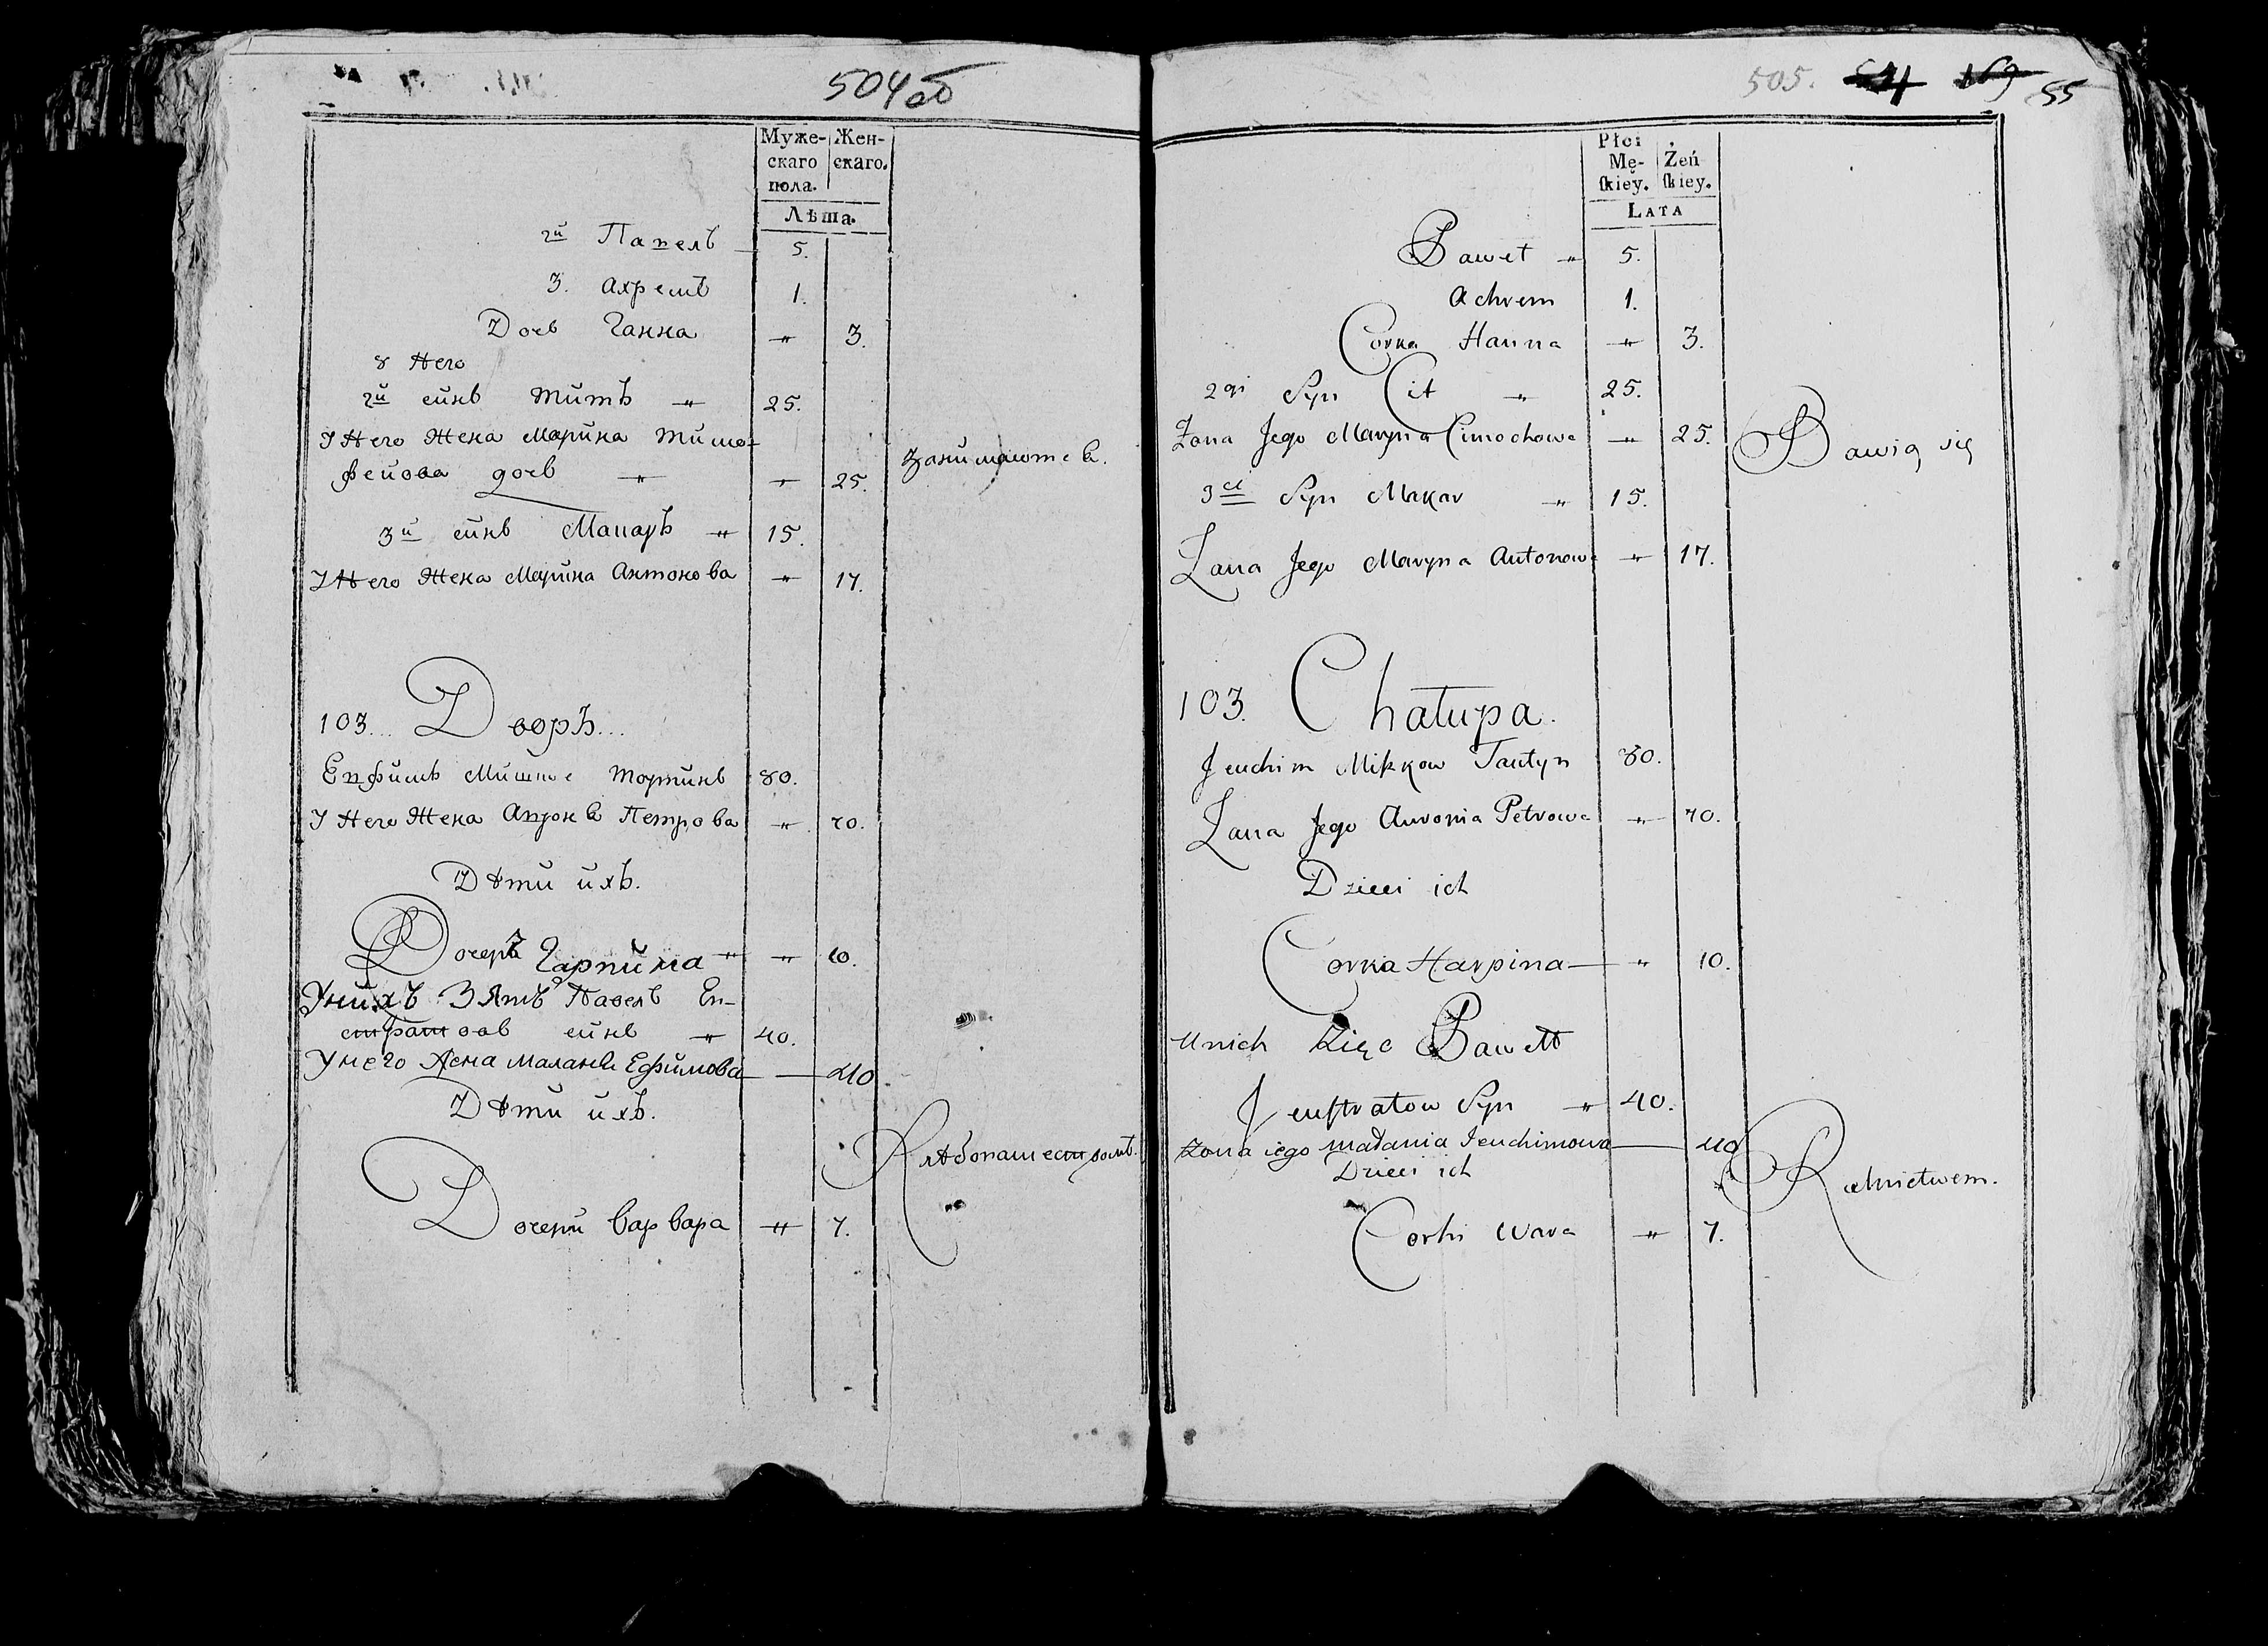 504 об
Муже- Жен-
скаго скаго.
пола.
Лѣта.
2й Павелъ 5.
3. Ахремъ 1.
Дочь Ганна " 3.
У Него
2й сынъ Титъ " 25.
У Него Жена Марина Тимо-
фейова дочь " " 25. Занимаются
3й сынъ Макаръ " 15.
У Него Жена Марина Антонова " 17.
103... Дворъ...
Евфимъ Тортинъ 80.
У Него Жена Авронья Петрова " 70.
Дѣти ихъ.
Дочеръ Гарпина " " 10.
У нихъ Зять Павелъ Ев-
стратовъ сынъ " 40.
У него Жена Маланья Ефимова — 40
Дѣти ихъ.
Хлѣбопашествомъ.
Дочери Варвара " 7.
505. 55
Płci
Mę- Żeń
ſkieÿ. ſkiey.
LATA
Paweł " 5.
Achrem 1.
Corka Hanna " 3.
2gi Syn Cit " 25.
Zona Jego Maryna Cimochowa " 25. Bawią się
3ci Syn Makar " 15.
Zona Jego Maryna Antonowa " 17.
103. Chałupa.
Jeuchim Miszkow Tautyn 80.
Zona Jego Auronia Petrowa " 70.
Dzieci ich
Corka Harpina — " 10.
U nich Zięc Paweł
Jeustratow Syn " 40.
Zona iego Małania Jeuchimowa — 40
Dzieci ich
Rolnictwem.
Corki Wara " 7.